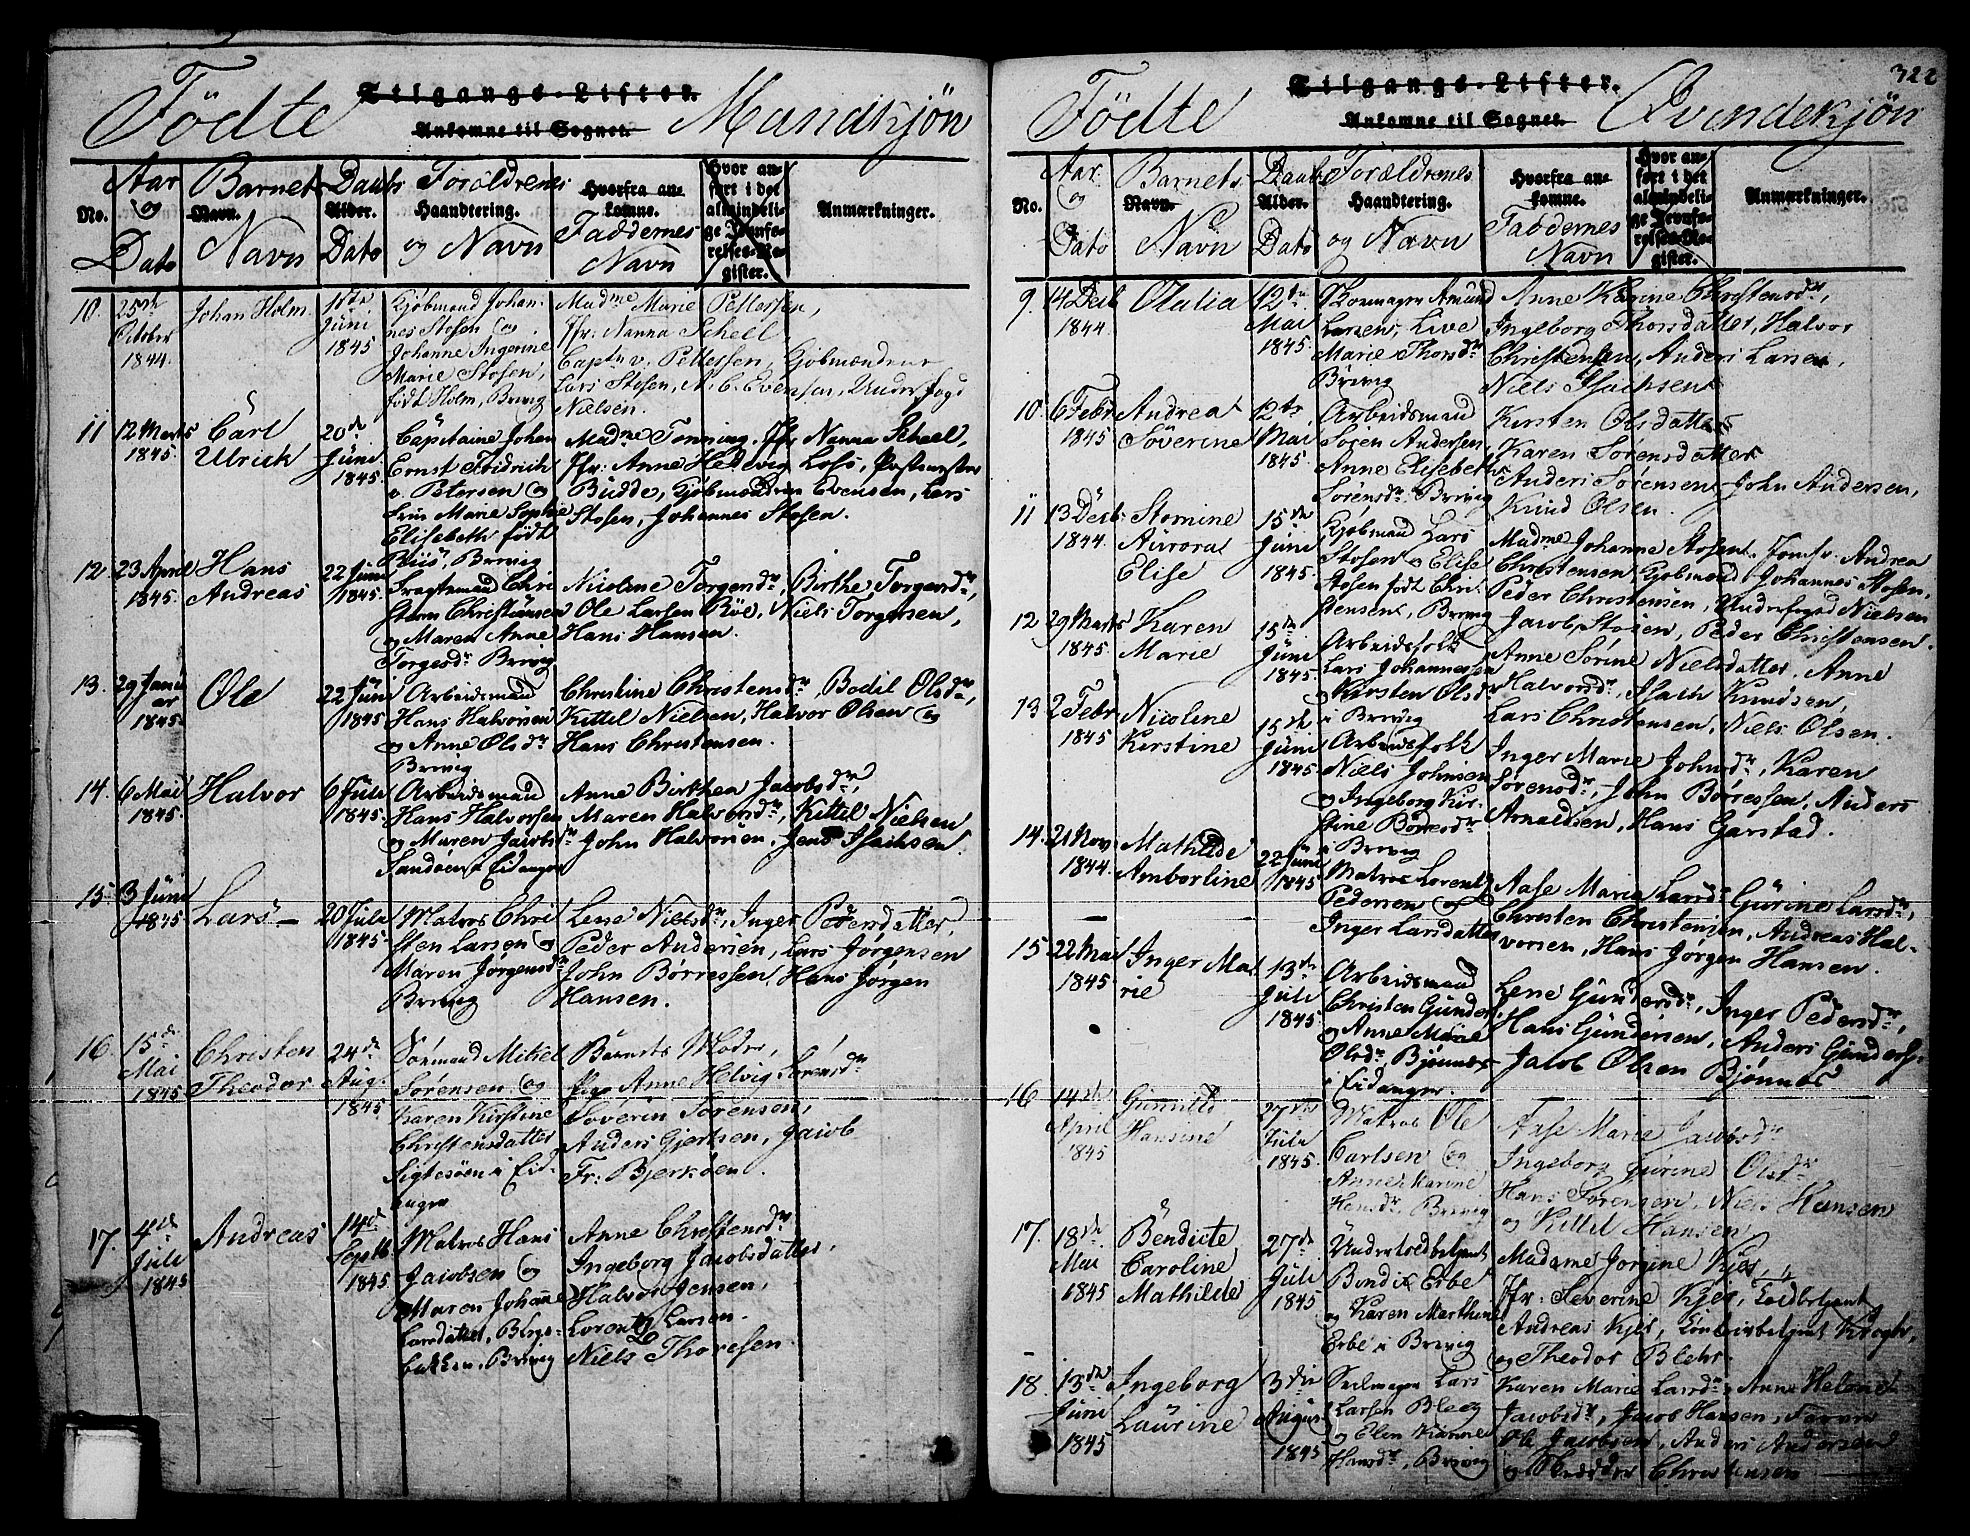 Födte Tilgangs-Lister. Mandkjön
Ankomne til Sognet.
No.
Aar og Dato
Barnets Navn. Navn
Daabs Alder. Dato
Forældrenes Haandtering. og Navn
Hvorfra ankomne. Faddernes Navn
Hvor anført i det almindelige Jevnførelses-Register.
Anmærkninger.
10. 25de October 1844.
Johan Holm.
11te Juni 1845
Kjöbmand Johannes Stosen og
Johanne Ingerine
Marie Stosen,
födt Holm, Brevig
Madme Marie Pettersen,
Jfr. Nanna Schell
Captn v. Pettersen, Kjöbmændene
Lars Stosen, N. C. Evensen, Underfogd
Nielsen.
11 12 Marts 1845.
Carl Ulrich
20de Juni 1845.
Capitaine Johan
Ernst Fridrich
v. Petersen og
Marie Sophie
Elisabeth födt
Brevig
Madme Tonning. Jfr Nanna Scheel,
Jfr: Anne Hedevig
Budde, Kjöbmændene Evensen, Lars
Stosen, Johannes Stosen.
12. 23 April 1845.
Hans Andreas
22 Juni 1845.
Fragtemand Christen Christensen
og Maren Anne
Torgesdr Brevig
Nicoline Torgensdr, Birthe Torgensdr,
Ole Larsen Röe, Niels Torgensen,
Hans Hansen.
13. 29 Januar 1845.
Ole
22 Juni 1845
Arbeidsmand
Hans Halvorsen
og Anne Olsdr
Brevig
Christine Christensdr, Bodil Olsdr,
Kittel Nielsen, Halvor Olsen og
Hans Christensen.
14. 6 Mai 1845.
Halvor
6 Juli 1845.
Arbeidsmand
Hans Halvorsen
og Maren Jacobsdr
Sandöen i Eidanger
Anne Birthea Jacobsdr,
Maren Halvorsdr, Kittel Nielsen
John Halvorsen, Jens Isachsen.
15. 3 Juni 1845
Lars
20 Julii 1845.
Matros Christen Larsen og
Maren Jørgensdr
Brevig
Lene Nielsdr, Inger Pedersdatter,
Peder Andersen, Lars Jørgensen
John Børressen, Hans Jørgen
Hansen.
16. 15de Mai 1845
Christen Theodor
24de Aug. 1845
Sömand Mikel
Sörensen og
Karen Kirstine
Christensdatter
Sigtesöen i Eidanger
Barnets Moder,
Pige Anne Helvig Sörensdr
Soverin Sorensen,
Anders Gjertsen, Jacob
Fr: Bjerköen.
17. 4de Juli 1845
Andreas
14de Septb. 1845.
Matros Hans
Jacobsen og
Maren Johanne
Larsdatter,
Brevig
Anne Christensdr
Ingeborg Jacobsdatter,
Halvor Jensen,
Lorentz Larsen.
Niels Thoresen.
322
Födte Tilgangs-Lister. Qvindekjön
Ankomne til Sognet.
No.
Aar og Dato
Barnets Navn. Navn
Daabs Alder. Dato
Forældrenes Haandtering. og Navn
Hvorfra ankomne. Faddernes Navn
Hvor anført i det almindelige Jevnførelses-Register.
Anmærkninger.
9. 14 Decb 1844.
Olalia
12te Mai 1845.
Skomager Amund
Larsen, Live
Marie Thorsdr
Brevig
Anne Karine Christensdr,
Ingeborg Thorsdatter, Halvor
Christensen, Anders Larsen,
Niels Isachsen
10 6 Febr 1845
Andrea Söverine
12te Mai 1845.
Arbeidsmand
Sören Andersen
Anne Elisebeth
Sörensdr Brevig
Kirsten Olsdatter
Karen Sörensdatter
Anders Sörensen, John Andersen,
Knud Olsen.
11 13 Decb: 1844.
Stomine Aurora Elise
15de Juni 1845.
Kjöbmand Lars
Stosen og Elise
Stosen födt Christensen, Brevig
Madme Johanne Stosen, Jomfr. Andrea
Christensen, Kjöbmænd Johannes Stosen,
Peder Christensen, Underfogd Nielsen
Jacob Stosen, Peder Christensen.
12 29 Marts 1845.
Karen Marie
15de Juni 1845.
Arbeidsfolk
Lars Johannessen
og Kirsten Olsdr
i Brevig
Anne Sörine Nielsdatter, Anne
Halvorsdr, Isach Knudsen,
Lars Christensen, Niels Olsen.
13 2 Febr 1845
Nicoline Kirstine
15de Juni 1845.
Arbeidsfolk
Niels Johnsen
og Ingeborg Kirstine Börresdr
i Brevig
Inger Marie Johnsdr, Karen
Sörensdr, John Börressen, Anders
Arnaldsen, Hans Garstad.
14. 21 Nov. 1844.
Mathilde Amborline
22 Juni 1845
Matros Lorentz
Pedersen og
Inger Larsdatter
Aase Maria Larsdr Gurine Larsdr,
Christen Christensen, Andreas Halvorsen, Hans Jørgen Hansen.
15 22 Mai 1845
Inger Marie
13de Juli 1845.
Arbeidsmand
Christen Gunders.
og Anne Marie
Olsdr Bjönnes
i Eidanger
Lene Gundersdr, Inger Pedersdr,
Hans Gundersen, Anders Gunders.
Jacob Olsen Bjönnes
16 14de April 1845
Gunild Hansine
27de Julii 1845.
Matros Ole
Carlsen og
Anne Karine
Hansdr Brevig
Aase Marie Jacobsdr
Ingeborg Gurine Olsdr
Hans Sörensen, Niels Hansen
og Kittel Hansen
17. 18de Mai 1845
Bendicte Caroline Mathilde
27de Juli 1845
Undertoldbetjent
Bendix Erbe
og Karen Marthine
Erbe i Brevig
Madame Jorgine Kjer,
Jfr: Severine Kjer, Toldbetjent
Andreas Kjer, Toldbetjent Krogh,
og Theodor Blehr.
18. 13de Juni 1845
Ingeborg Laurine
3die August 1845
Seilmager Lars
Larsen Bleeg
og Elen Karine
Hansdr, Brevig
Karen Marie Larsdr, Anne Helene
Jacobsdr, Jacob Hansen, Farver
Ole Jacobsen, Anders Andersen
og Christensen